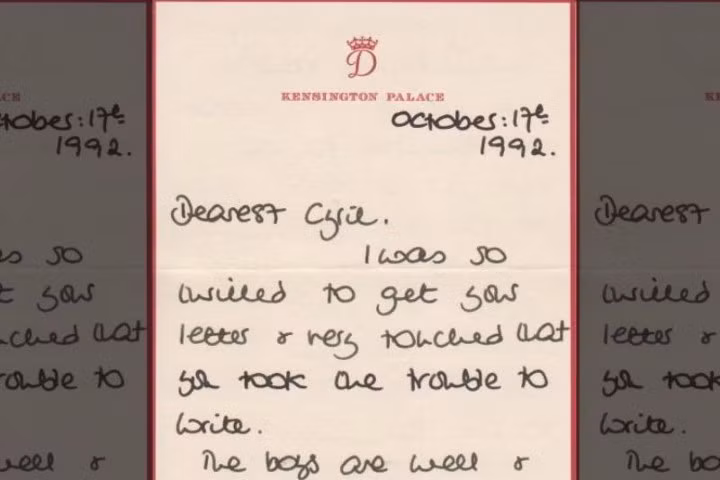 D
KENSINGTON PALACE
October: 17th
1992.
Dearest Cyril.
I was so
thrilled to get your
letter & very touched that
you took the trouble to
write.
The boys are well &